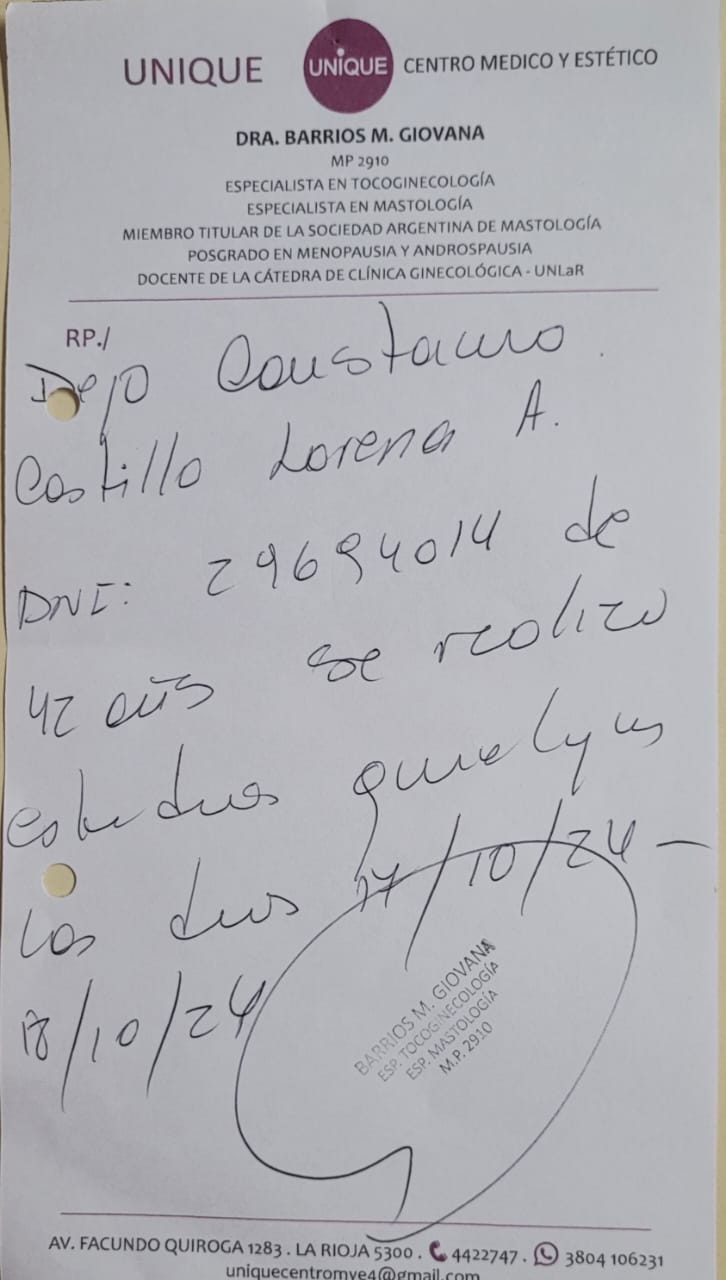 UNIQUE UNIQUE CENTRO MEDICO Y ESTÉTICO
DRA. BARRIOS M. GIOVANA
MP 2910
ESPECIALISTA EN TOCOGINECOLOGÍA
ESPECIALISTA EN MASTOLOGÍA
MIEMBRO TITULAR DE LA SOCIEDAD ARGENTINA DE MASTOLOGÍA
POSGRADO EN MENOPAUSIA Y ANDROSPAUSIA
DOCENTE DE LA CÁTEDRA DE CLÍNICA GINECOLÓGICA - UNLaR
RP./
Dejo Constancia
Castillo Lorena A.
DNI: 29694014 de
42 años se realizo
estudios
los dias 17/10/24 —
18/10/24
BARRIOS M. GIOVANA
ESP. TOCOGINECOLOGÍA
ESP. MASTOLOGÍA
M.P. 2910
AV. FACUNDO QUIROGA 1283 . LA RIOJA 5300 . 4422747 . 3804 106231
uniquecentromye4@gmail.com